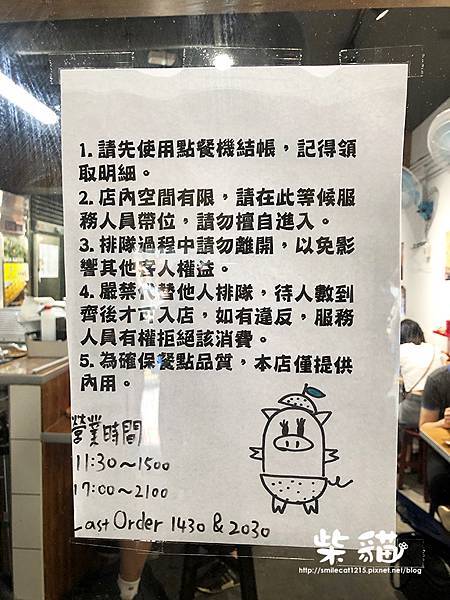 1. 請先使用點餐機結帳，記得領
取明細。
2. 店內空間有限，請在此等候服
務人員帶位，請勿擅自進入。
3. 排隊過程中請勿離開，以免影
響其他客人權益。
4. 嚴禁代替他人排隊，待人數到
齊後才可入店，如有違反，服務
人員有權拒絕該消費。
5. 為確保餐點品質，本店僅提供
內用。
營業時間
11:30～1500
17:00～2100
Last Order 1430 & 2030
柴貓
http://smilecat1215.pixnet.net/blog